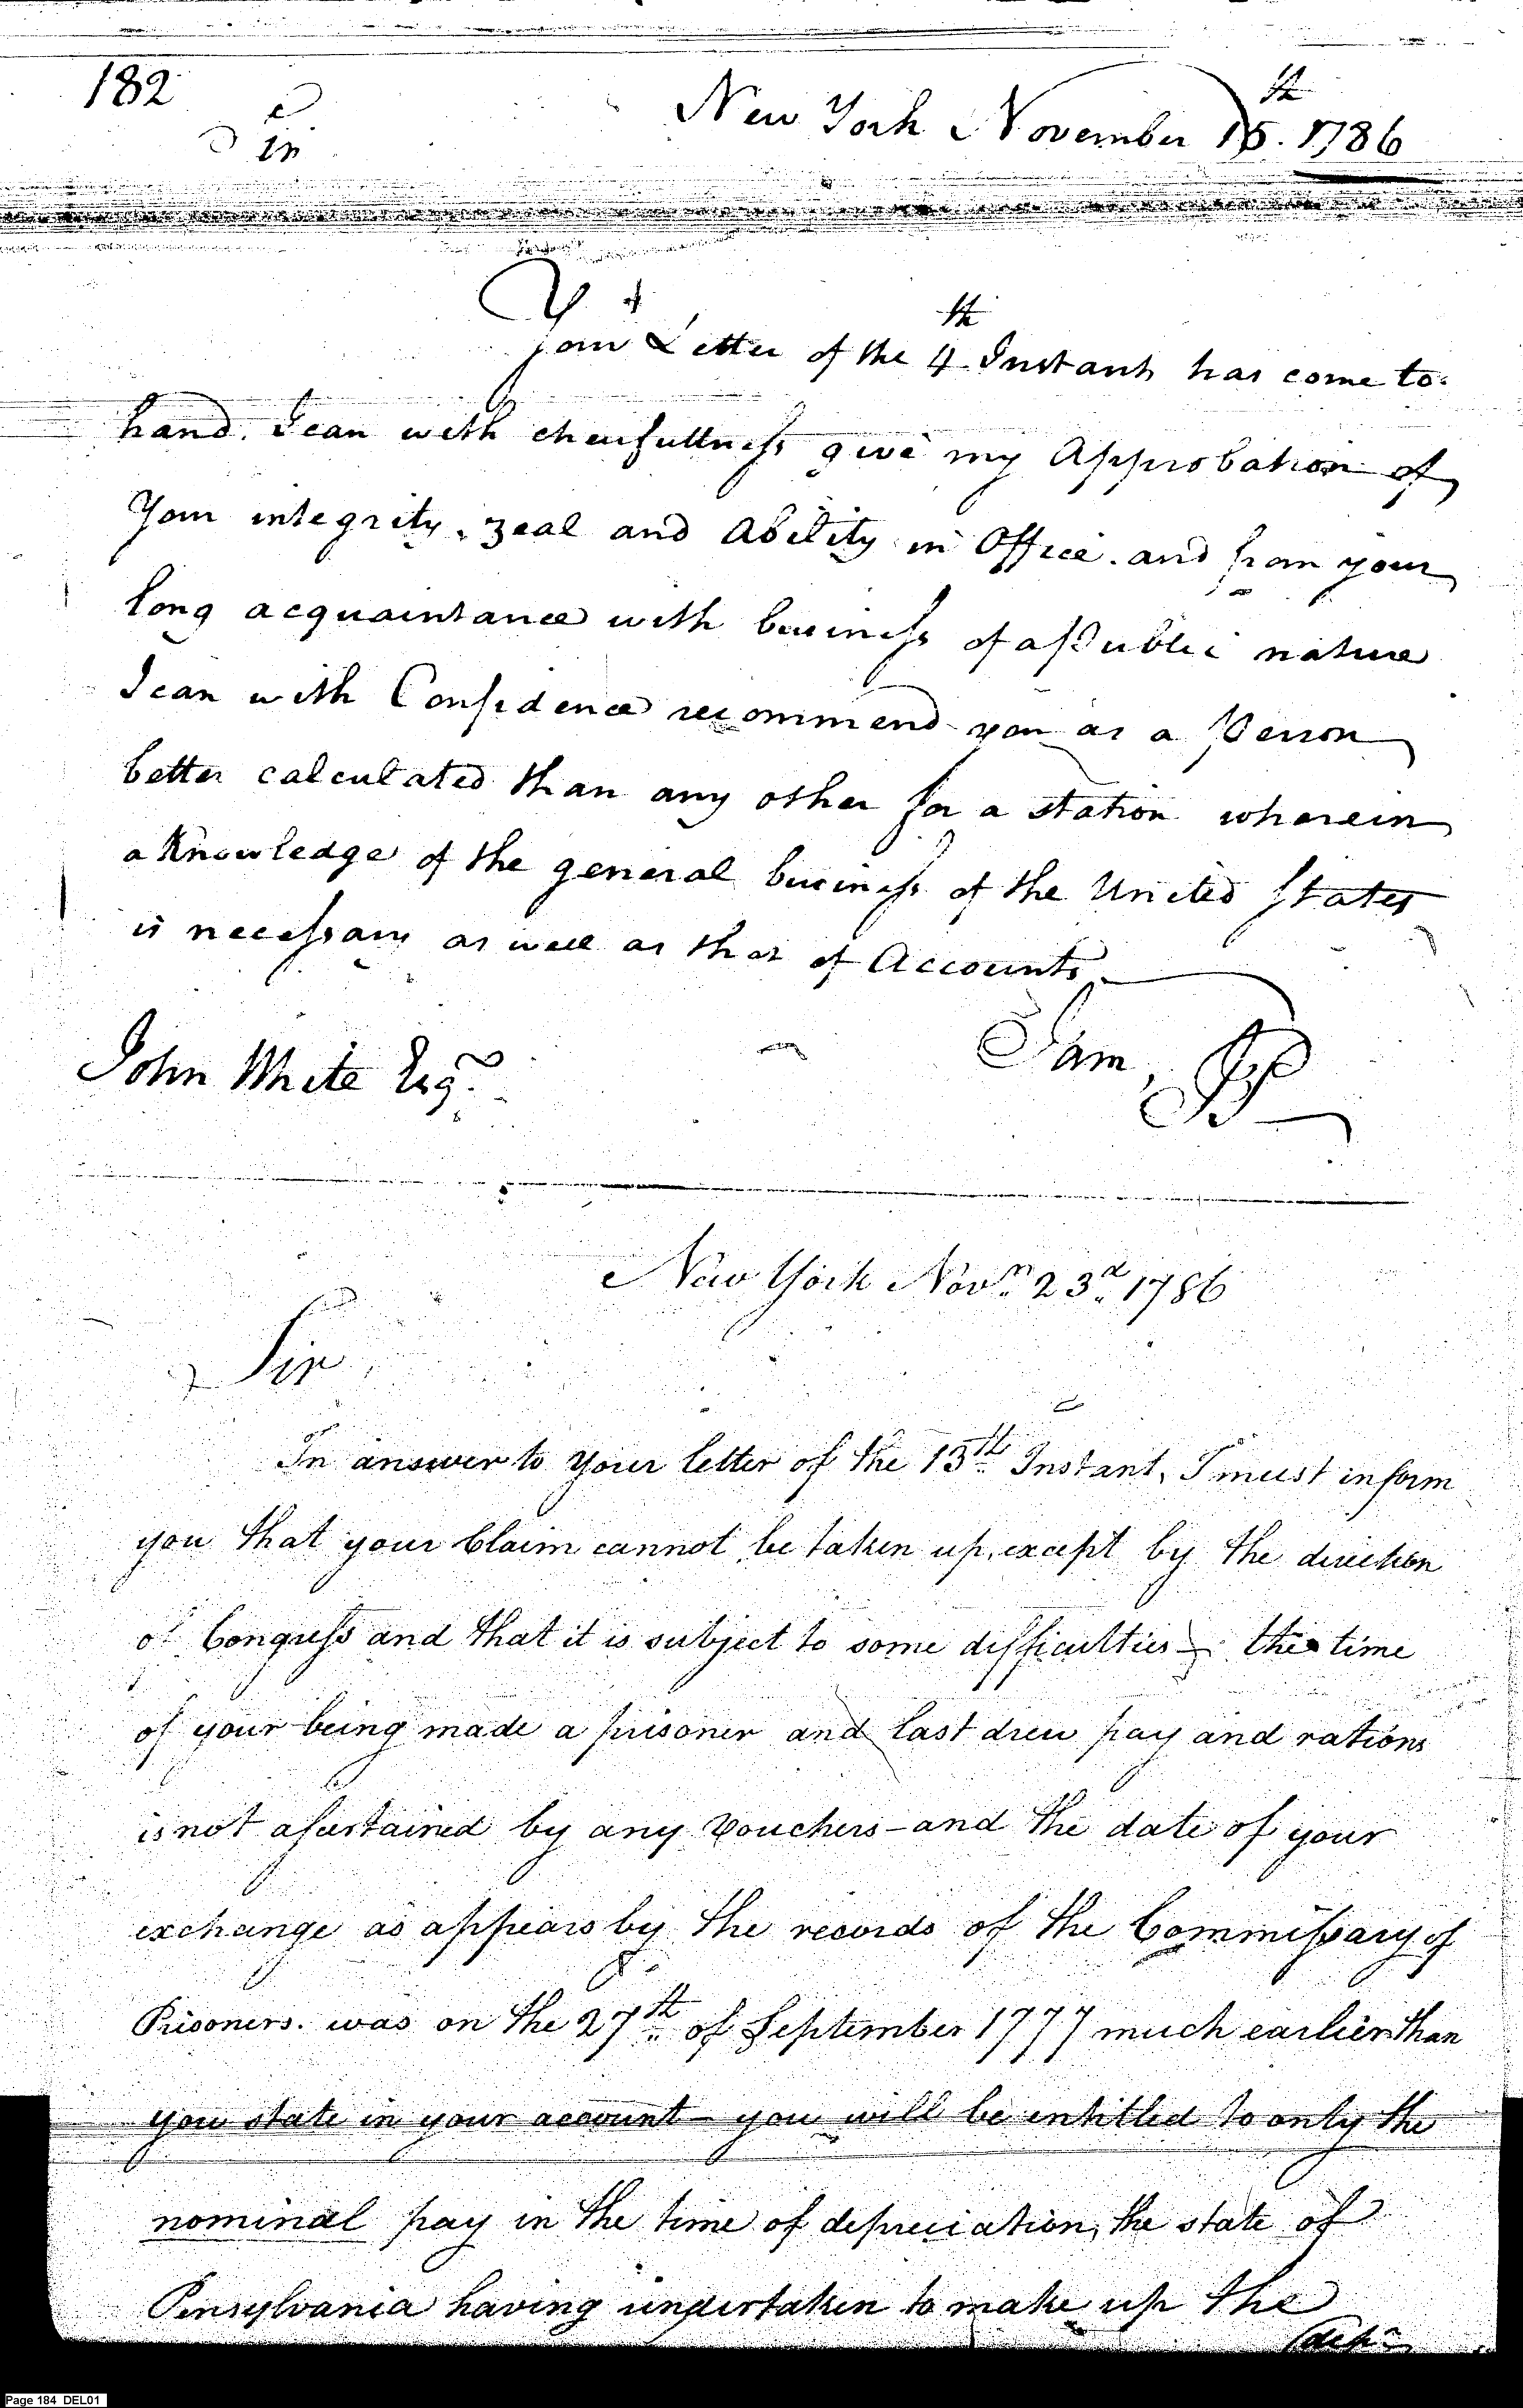 182
New York November 15th. 1786
Sir
Your Letter of the 4th Instant has come to
hand. I can with chearfullness give my Approbation of
Your integrity, zeal and Ability in Office. and from your
long acquaintance with business of a Public nature
I can with Confidence recommend you as a Person
better calculated than any other for a station wherein
a Knowledge of the general business of the United States
is necessary as well as that of Accounts
I am,
John White Esqr.
New York Novr. 23d. 1786
Sir
In answer to your letter of the 13th. Instant, I must inform
you that your Claim cannot be taken up, except by the direction
of Congress and that it is subject to some difficulties – the time
of your being made a prisoner and last drew pay and rations
is not assertained by any vouchers – and the date of your
exchange as appears by the records of the Commissary of
Prisoners. was on the 27th. of September 1777 much earlier than
you state in your account – you will be entitled to only the
nominal pay in the time of depreciation, the state of
Pensylvania having undertaken to make up the
depn
Page 184 DEL01